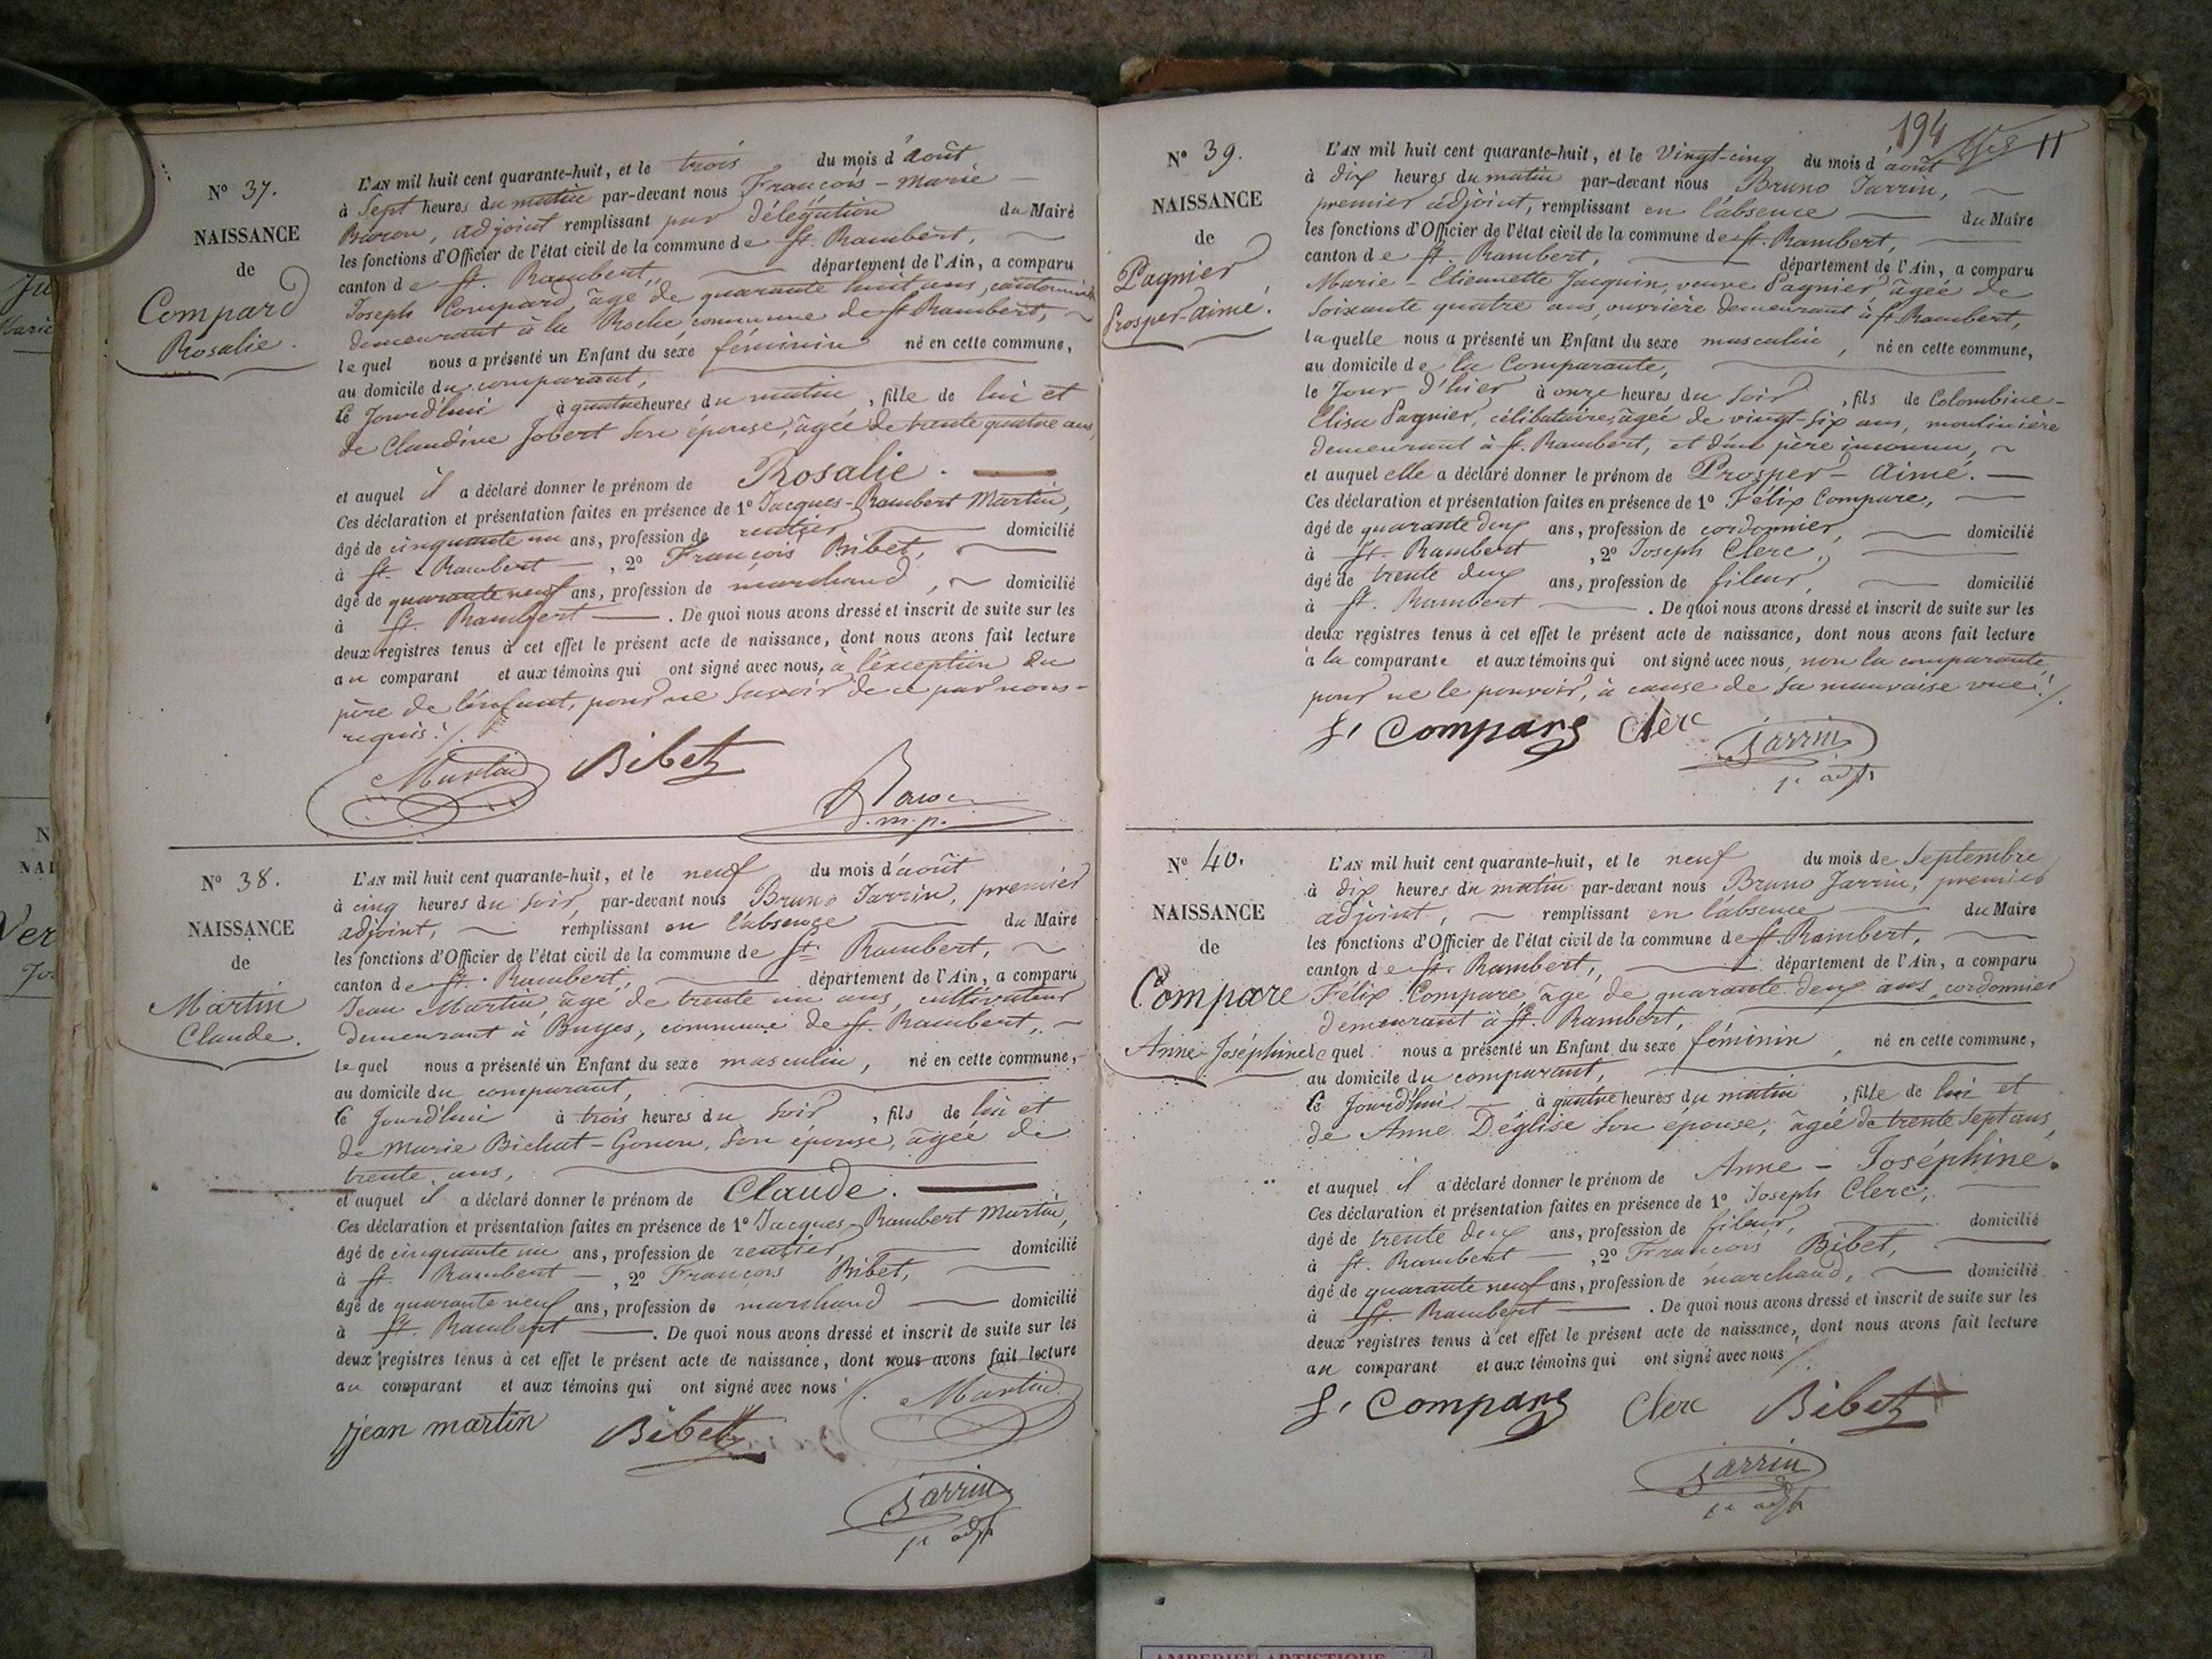 N° 37.
NAISSANCE
de
Compard
Rosalie.
L'AN mil huit cent quarante-huit, et le trois du mois d'août
à sept heures du matin par-devant nous François-Marie
adjoint remplissant par délégation du Maire
les fonctions d'Officier de l'état civil de la commune de St. Rambert,
canton de St. Rambert, département de l'Ain, a comparu
Joseph Compard, âgé de quarante huit ans,
demeurant à la Roche, commune de St Rambert,
lequel nous a présenté un Enfant du sexe féminin né en cette commune,
au domicile du comparant,
le Jourd'hui à quatre heures du matin, fille de lui et
de Claudine Jobert son épouse, âgée de trente quatre ans,
et auquel il a déclaré donner le prénom de Rosalie.
Ces déclaration et présentation faites en présence de 1° Jacques-Rambert Martin,
âgé de cinquante un ans, profession de rentier domicilié
à St. Rambert, 2° François Bibet,
âgé de quarante neuf ans, profession de marchand, domicilié
à St. Rambert. De quoi nous avons dressé et inscrit de suite sur les
deux registres tenus à cet effet le présent acte de naissance, dont nous avons fait lecture
au comparant et aux témoins qui ont signé avec nous, à l'exception du
père de l'enfant, pour ne savoir de ce par nous
requis./.
Martin Bibet
d.m.p.
N° 38.
NAISSANCE
de
Martin
Claude.
L'AN mil huit cent quarante-huit, et le neuf du mois d'août
à cinq heures du soir, par-devant nous Bruno Jarrin, premier
adjoint, remplissant en l'absence du Maire
les fonctions d'Officier de l'état civil de la commune de St Rambert,
canton de St. Rambert, département de l'Ain, a comparu
Jean Martin, âgé de trente un ans, cultivateur
demeurant à Buges, commune de St Rambert,
lequel nous a présenté un Enfant du sexe masculin, né en cette commune,
au domicile du comparant,
le Jourd'hui à trois heures du soir, fils de lui et
de Marie Bichat-Gonon, son épouse, âgée de
trente ans,
et auquel il a déclaré donner le prénom de Claude.
Ces déclaration et présentation faites en présence de 1° Jacques-Rambert Martin,
âgé de cinquante un ans, profession de rentier domicilié
à St. Rambert, 2° François Bibet,
âgé de quarante neuf ans, profession de marchand domicilié
à St. Rambert. De quoi nous avons dressé et inscrit de suite sur les
deux registres tenus à cet effet le présent acte de naissance, dont nous avons fait lecture
au comparant et aux témoins qui ont signé avec nous /.
Martin
jean martin Bibet
Jarrin
1er adjt
194 11
N° 39.
NAISSANCE
de
Pagnier
Prosper-aimé.
L'AN mil huit cent quarante-huit, et le Vingt-cinq du mois d'août
à dix heures du matin par-devant nous Bruno Jarrin,
premier adjoint, remplissant en l'absence du Maire
les fonctions d'Officier de l'état civil de la commune de St. Rambert,
canton de St. Rambert, département de l'Ain, a comparu
Marie-Etiennette Jacquin, veuve Pagnier âgée de
soixante quatre ans, ouvrière demeurant à St. Rambert,
laquelle nous a présenté un Enfant du sexe masculin, né en cette commune,
au domicile de la Comparante,
le Jour d'hier à onze heures du soir, fils de Colombine-
Elisa Pagnier, célibataire, âgée de vingt-six ans, moulinière
demeurant à St. Rambert, et d'un père inconnu,
et auquel elle a déclaré donner le prénom de Prosper-Aimé.
Ces déclaration et présentation faites en présence de 1° Félix Compare,
âgé de quarante deux ans, profession de cordonnier, domicilié
à St. Rambert, 2° Joseph Clerc,
âgé de trente deux ans, profession de fileur, domicilié
à St. Rambert. De quoi nous avons dressé et inscrit de suite sur les
deux registres tenus à cet effet le présent acte de naissance, dont nous avons fait lecture
à la comparante et aux témoins qui ont signé avec nous, non la comparante,
pour ne le pouvoir, à cause de sa mauvaise vue./.
f. Compare Clerc Jarrin
1er adjt
N° 40.
NAISSANCE
de
Compare
Anne-Joséphine
L'AN mil huit cent quarante-huit, et le neuf du mois de Septembre
à dix heures du matin par-devant nous Bruno Jarrin, premier
adjoint, remplissant en l'absence du Maire
les fonctions d'Officier de l'état civil de la commune de St Rambert,
canton de St. Rambert, département de l'Ain, a comparu
Félix Compare, âgé de quarante deux ans, cordonnier
demeurant à St. Rambert,
lequel nous a présenté un Enfant du sexe féminin, né en cette commune,
au domicile du comparant,
le Jourd'hui à quatre heures du matin, fille de lui et
de Anne Déglise son épouse, âgée de trente sept ans,
et auquel il a déclaré donner le prénom de Anne-Joséphine.
Ces déclaration et présentation faites en présence de 1° Joseph Clerc,
âgé de trente deux ans, profession de fileur, domicilié
à St. Rambert, 2° François Bibet,
âgé de quarante neuf ans, profession de marchand, domicilié
à St. Rambert. De quoi nous avons dressé et inscrit de suite sur les
deux registres tenus à cet effet le présent acte de naissance, dont nous avons fait lecture
au comparant et aux témoins qui ont signé avec nous /.
f. Compare Clerc Bibet
Jarrin
1er adjt
AMBERIEU ARTISTIQUE